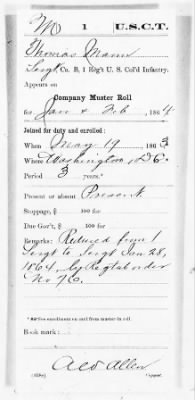 M 1 U.S.C.T.
Thomas Mann
Sergt, Co. B, 1 Reg't U. S. Col'd Infantry.
Appears on
Company Muster Roll
for Jan & Feb, 1864
Joined for duty and enrolled:
When May 19, 1863
Where Washington, D.C.
Period 3 years.*
Present or absent Present
Stoppage, $ 100 for
Due Gov't, $ 100 for
Remarks: Reduced from 1
Sergt to Sergt Jan 28,
1864, by Regtal order
No 76.
*See enrollment on card from muster-in roll.
Book mark:
Allen
Copyist.